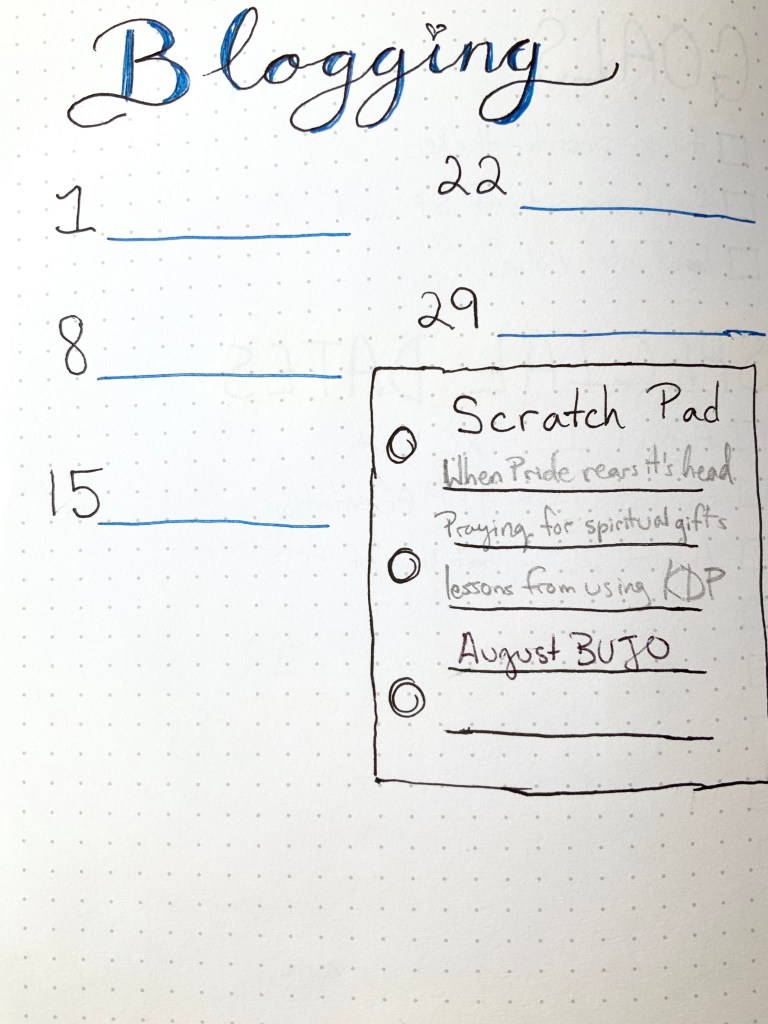 Blogging
1
8
15
22
29
Scratch Pad
When Pride rears it's head
Praying for spiritual gifts
lessons from using KDP
August BUJO